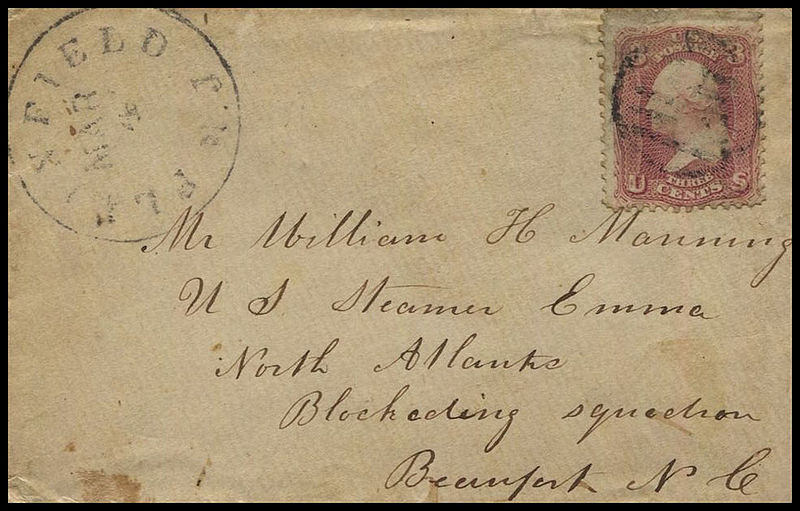 FIELD
MAR
3
U S
THREE
CENTS
Mr William H Manning
U S Steamer Emma
North Atlantic
Blockading squadron
Beaufort N C